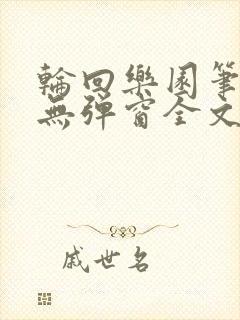 輪回樂園筆
無彈窗全文
戚世名